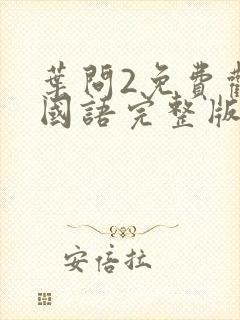 葉問2免費
國語完整版
安倍拉